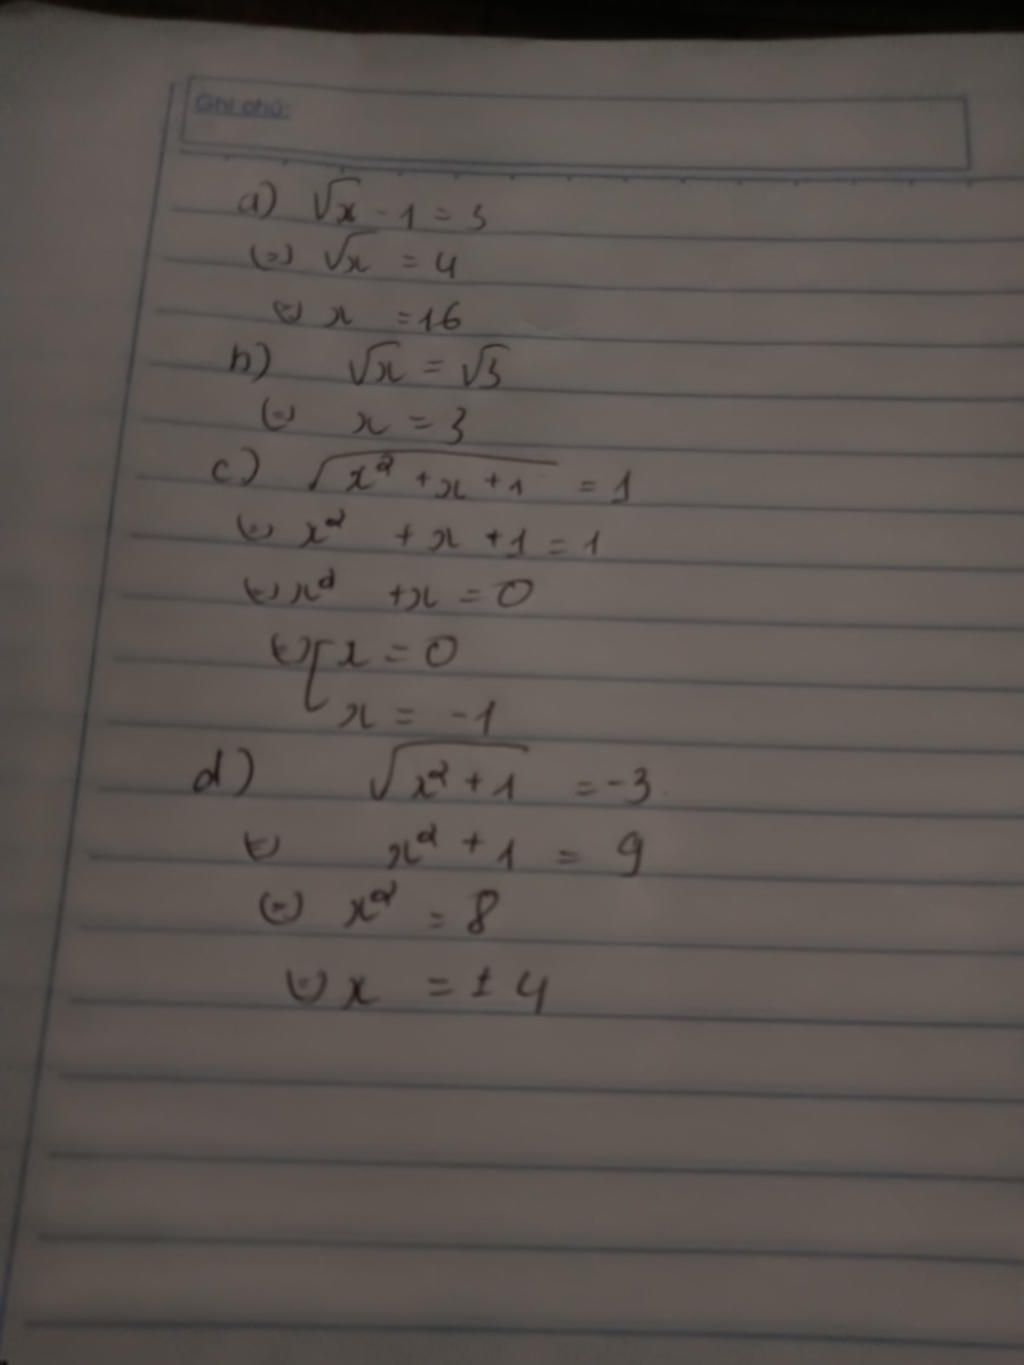 Ghi chú:
a) √x - 1 = 3
(=) √x = 4
(=) x = 16
b) √x = √3
(=) x = 3
c) √(x² + x + 1) = 1
(=) x² + x + 1 = 1
(=) x² + x = 0
(=) [ x = 0
x = -1
d) √(x² + 1) = -3
(=) x² + 1 = 9
(=) x² = 8
(=) x = ± 4